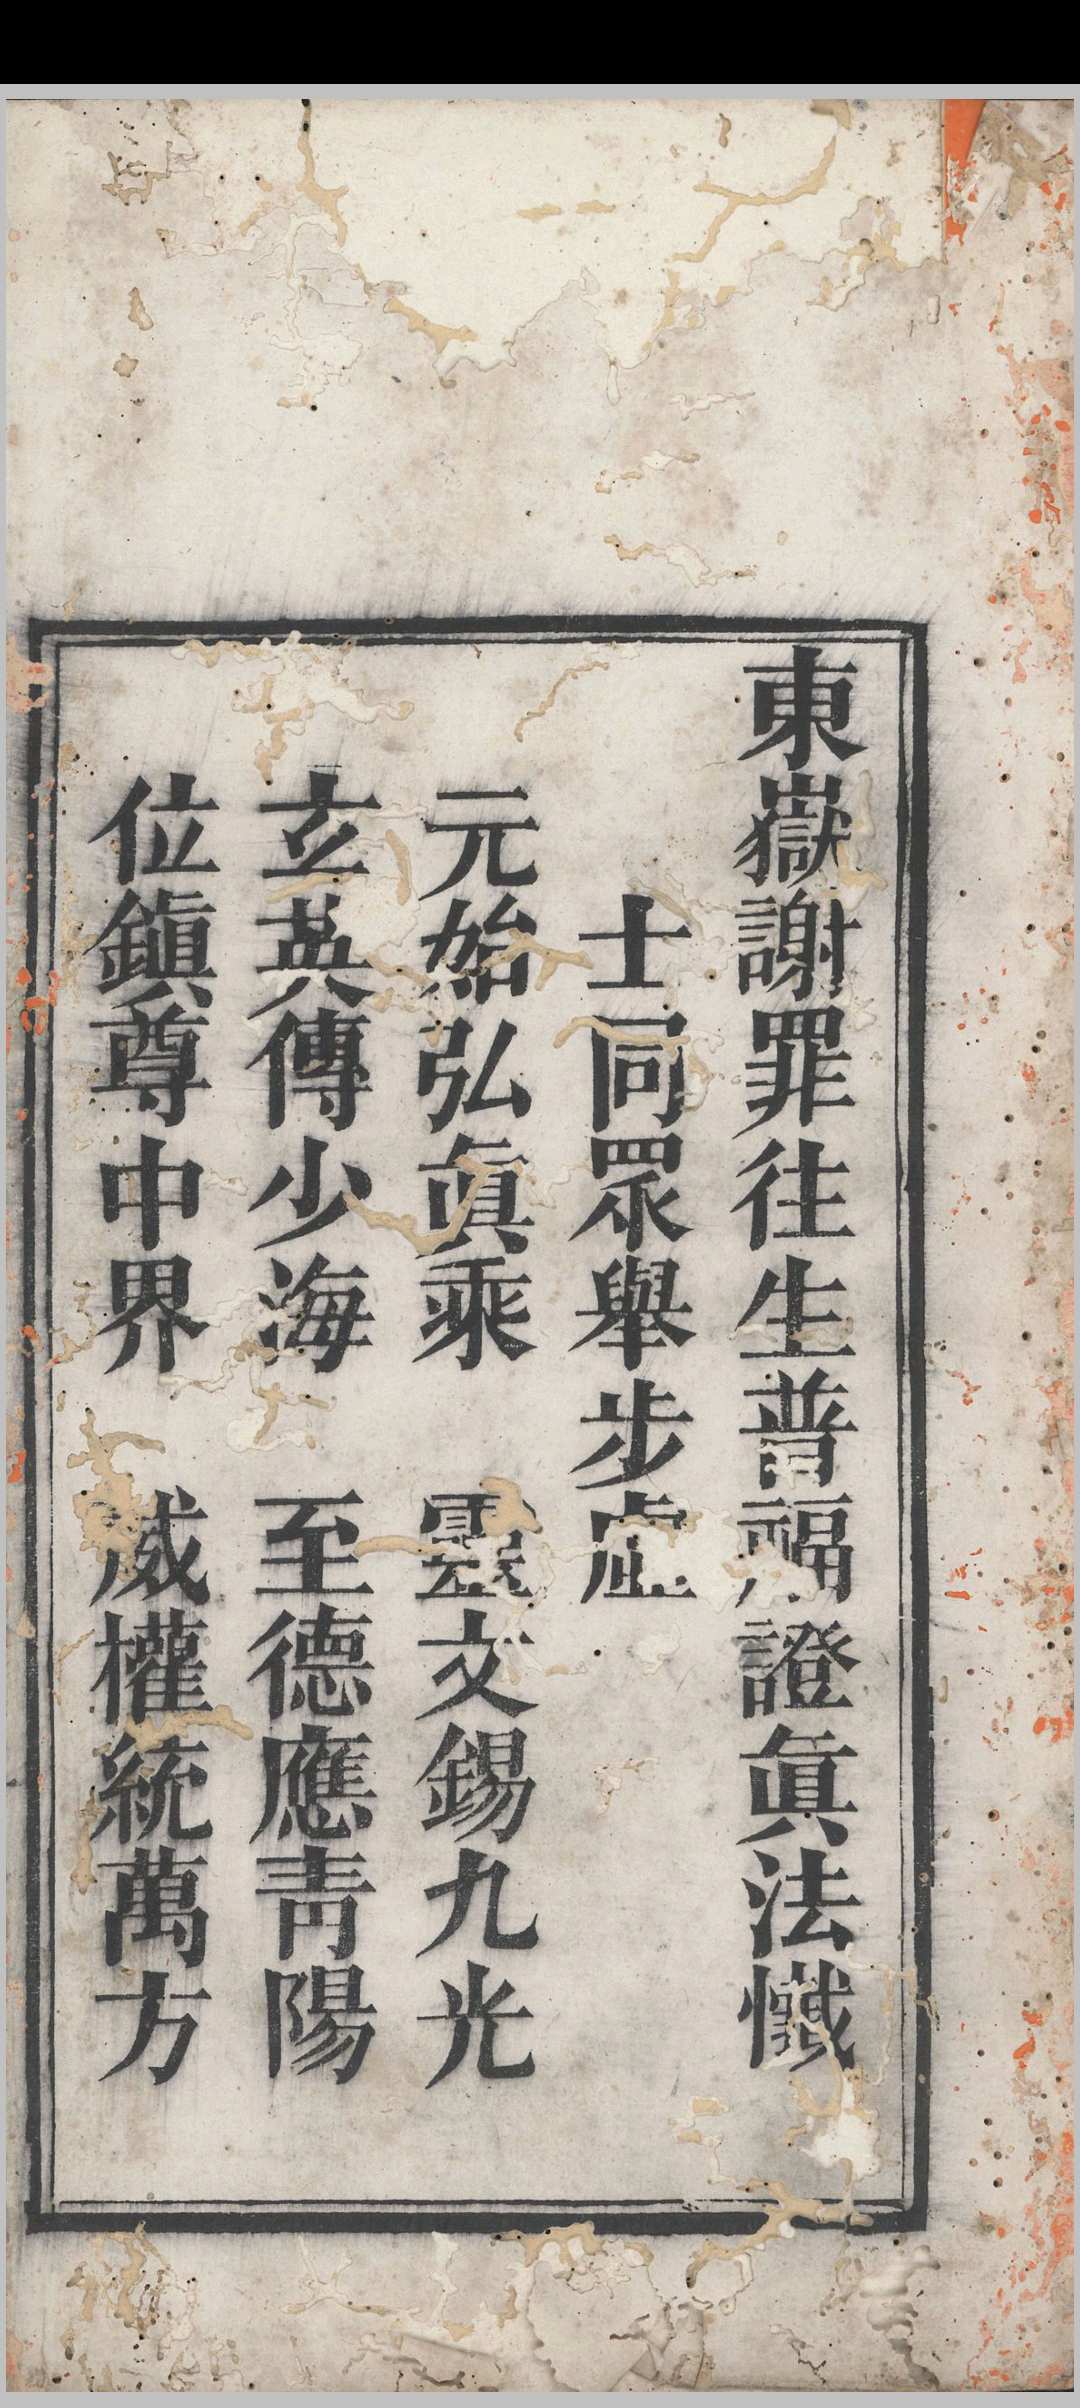 東嶽謝罪往生普福證眞法懺
士同眾舉步虛
元始弘眞乘　靈文錫九光
玄英傳少海　至德應青陽
位鎮尊中界　威權統萬方